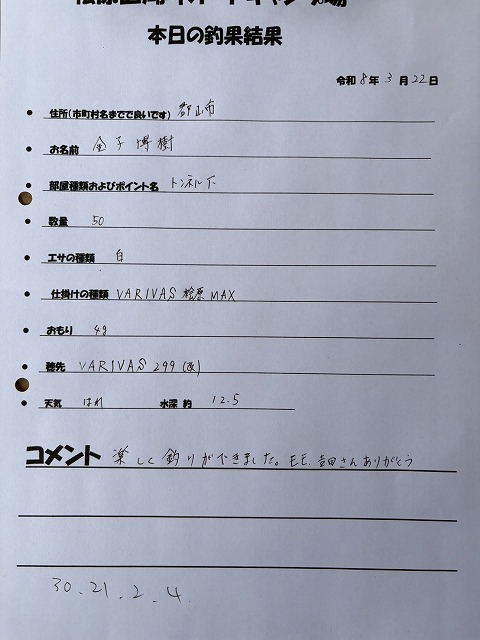 本日の釣果結果
令和 8 年 3 月 22 日
住所(市町村名までで良いです) 郡山市
お名前 金子博樹
部屋種類およびポイント名 トンネル下
数量 50
エサの種類 白
仕掛けの種類 VARIVAS 桧原 MAX
おもり 4g
穂先 VARIVAS 299 (改)
天気 はれ 水深 約 12.5
コメント 楽しく釣りができました。モモ、吉田さんありがとう
30.21.2.4